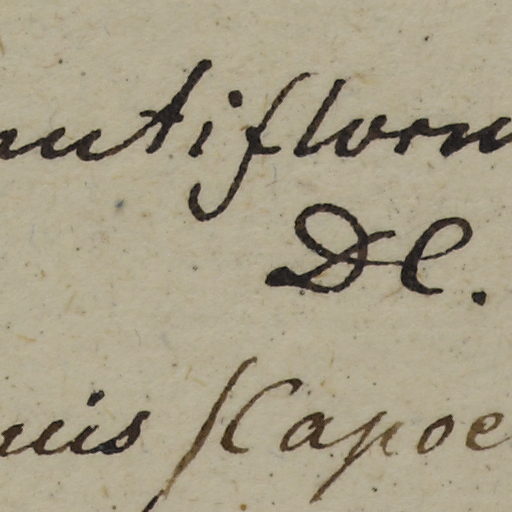 autiflorus
Dl.
uis ſcapoe